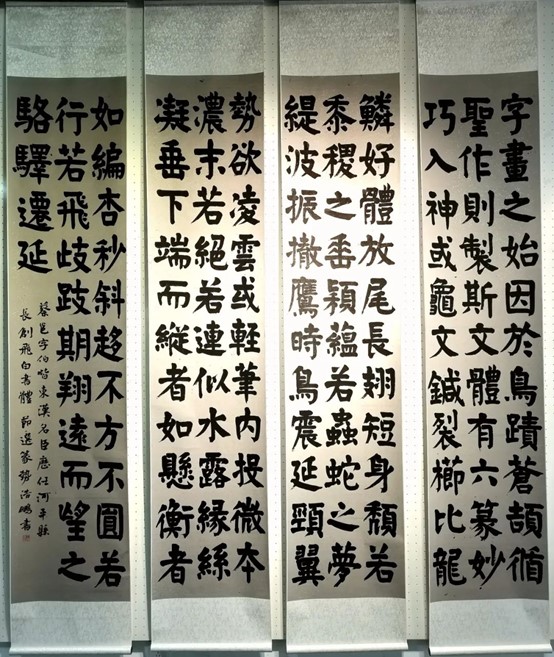 字畫之始因於鳥蹟蒼頡循
聖作則製斯文體有六篆妙
巧入神或龜文鍼裂櫛比龍
鱗好體放尾長翅短身頹若
黍稷之垂穎蘊若蟲蛇之夢
緹波振撤鷹時鳥震延頸翼
勢欲凌雲或軽筆内投微本
濃末若絕若連似水露緣絲
凝垂下端而縱者如懸衡者
如編杏秒斜趍不方不圓若
行若飛歧跂期翔遠而望之
駱驛遷延
蔡邕字伯喈東漢名臣歷任河平縣
長創飛白書體 節選篆勢浩鵬書